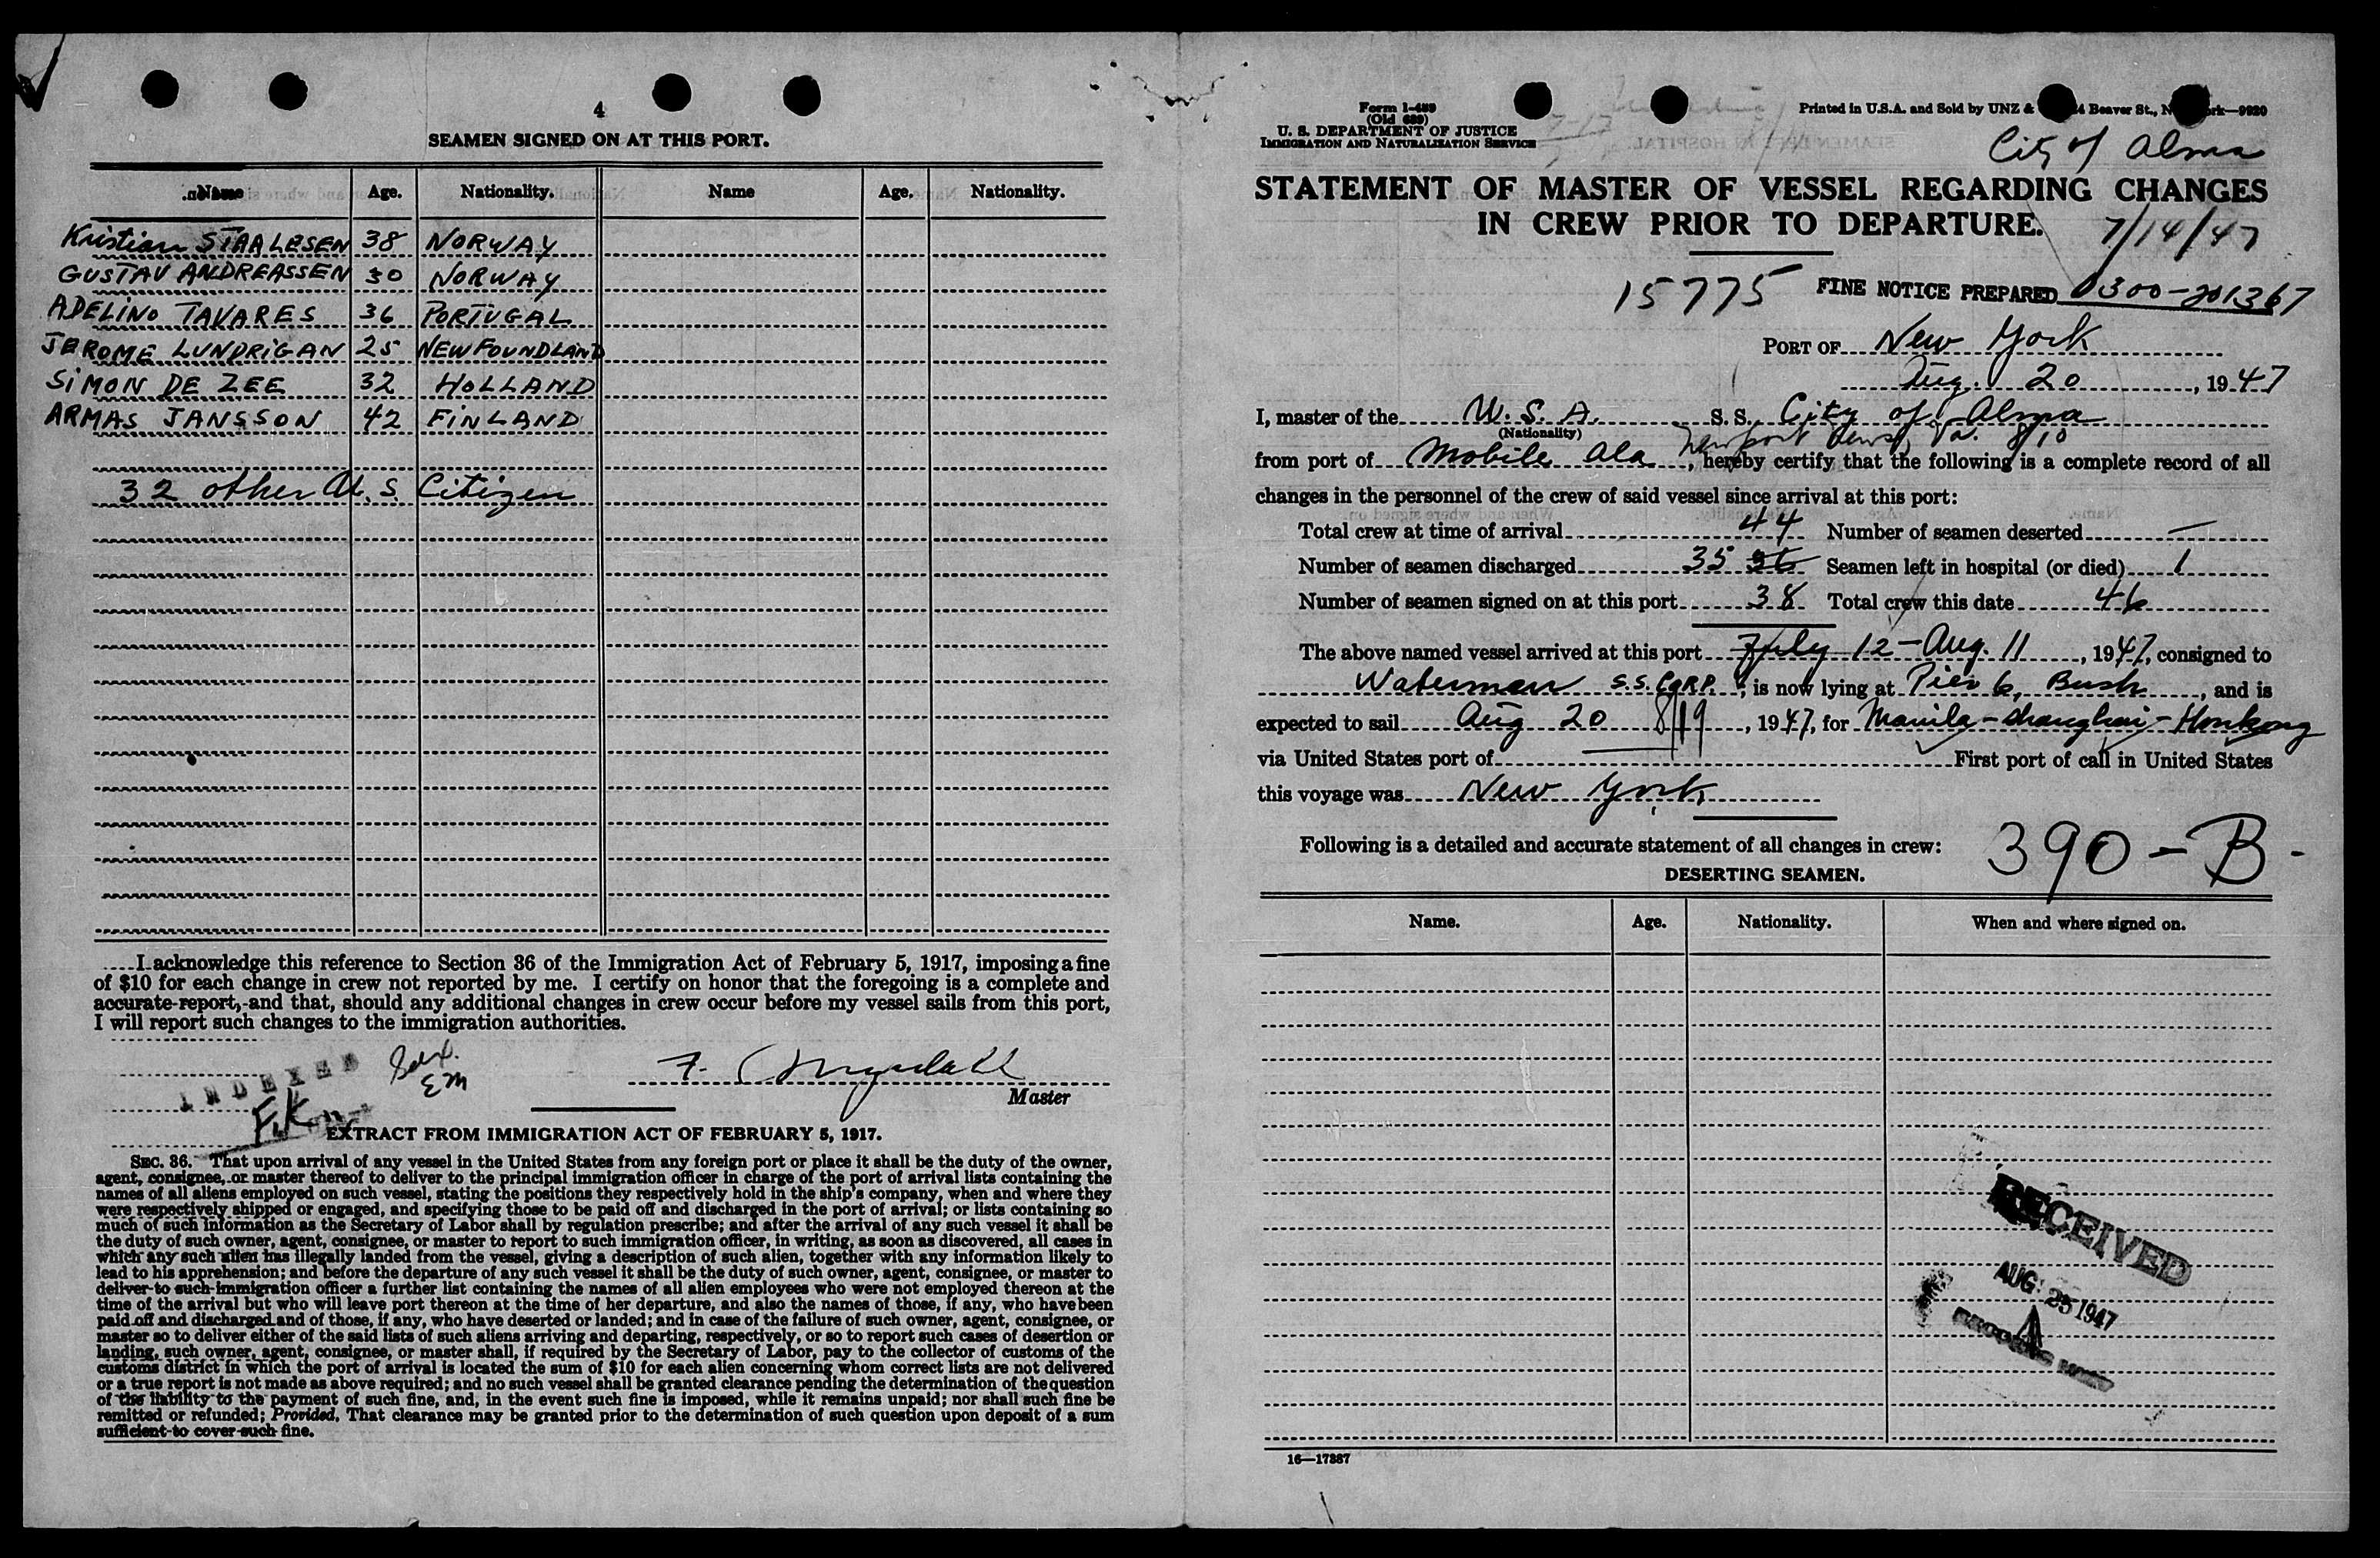 4
SEAMEN SIGNED ON AT THIS PORT.
Name Age. Nationality. Name Age. Nationality.
Kristian STAALESEN 38 NORWAY
GUSTAV ANDREASSEN 30 NORWAY
ADELINO TAVARES 36 PORTUGAL
JEROME LUNDRIGAN 25 NEWFOUNDLAND
SIMON DE ZEE 32 HOLLAND
ARMAS JANSSON 42 FINLAND
32 other U.S. Citizen
I acknowledge this reference to Section 36 of the Immigration Act of February 5, 1917, imposing a fine
of $10 for each change in crew not reported by me. I certify on honor that the foregoing is a complete and
accurate report, and that, should any additional changes in crew occur before my vessel sails from this port,
I will report such changes to the immigration authorities.
INDEXED
EM
F.
Master
F.K.
EXTRACT FROM IMMIGRATION ACT OF FEBRUARY 5, 1917.
SEC. 36. That upon arrival of any vessel in the United States from any foreign port or place it shall be the duty of the owner,
agent, consignee, or master thereof to deliver to the principal immigration officer in charge of the port of arrival lists containing the
names of all aliens employed on such vessel, stating the positions they respectively hold in the ship's company, when and where they
were respectively shipped or engaged, and specifying those to be paid off and discharged in the port of arrival; or lists containing so
much of such information as the Secretary of Labor shall by regulation prescribe; and after the arrival of any such vessel it shall be
the duty of such owner, agent, consignee, or master to report to such immigration officer, in writing, as soon as discovered, all cases in
which any such alien has illegally landed from the vessel, giving a description of such alien, together with any information likely to
lead to his apprehension; and before the departure of any such vessel it shall be the duty of such owner, agent, consignee, or master to
deliver to such immigration officer a further list containing the names of all alien employees who were not employed thereon at the
time of the arrival but who will leave port thereon at the time of her departure, and also the names of those, if any, who have been
paid off and discharged and of those, if any, who have deserted or landed; and in case of the failure of such owner, agent, consignee, or
master so to deliver either of the said lists of such aliens arriving and departing, respectively, or so to report such cases of desertion or
landing, such owner, agent, consignee, or master shall, if required by the Secretary of Labor, pay to the collector of customs of the
customs district in which the port of arrival is located the sum of $10 for each alien concerning whom correct lists are not delivered
or a true report is not made as above required; and no such vessel shall be granted clearance pending the determination of the question
of the liability to the payment of such fine, and, in the event such fine is imposed, while it remains unpaid; nor shall such fine be
remitted or refunded; Provided, That clearance may be granted prior to the determination of such question upon deposit of a sum
sufficient to cover such fine.
Form I-489
(Old 689)
U. S. DEPARTMENT OF JUSTICE
IMMIGRATION AND NATURALIZATION SERVICE
Printed in U.S.A. and Sold by UNZ & 4 Beaver St., N rk—9920
City of Alma
STATEMENT OF MASTER OF VESSEL REGARDING CHANGES
IN CREW PRIOR TO DEPARTURE.
7/14/47
15775 FINE NOTICE PREPARED 0300-201367
PORT OF New York
Aug. 20, 1947
I, master of the U.S.A. S. S. City of Alma
(Nationality) Newport News, Va. 8/10
from port of Mobile Ala, hereby certify that the following is a complete record of all
changes in the personnel of the crew of said vessel since arrival at this port:
Total crew at time of arrival 44 Number of seamen deserted —
Number of seamen discharged 35 36 Seamen left in hospital (or died) 1
Number of seamen signed on at this port 38 Total crew this date 46
The above named vessel arrived at this port July 12 - Aug. 11, 1947, consigned to
Waterman S.S. CORP., is now lying at Pier 6, Bush, and is
expected to sail Aug 20 8/19, 1947, for Manila - Shanghai - Honkong
via United States port of — First port of call in United States
this voyage was New York
Following is a detailed and accurate statement of all changes in crew:
390 - B -
DESERTING SEAMEN.
Name. Age. Nationality. When and where signed on.
RECEIVED
AUG 25 1947
16—17887